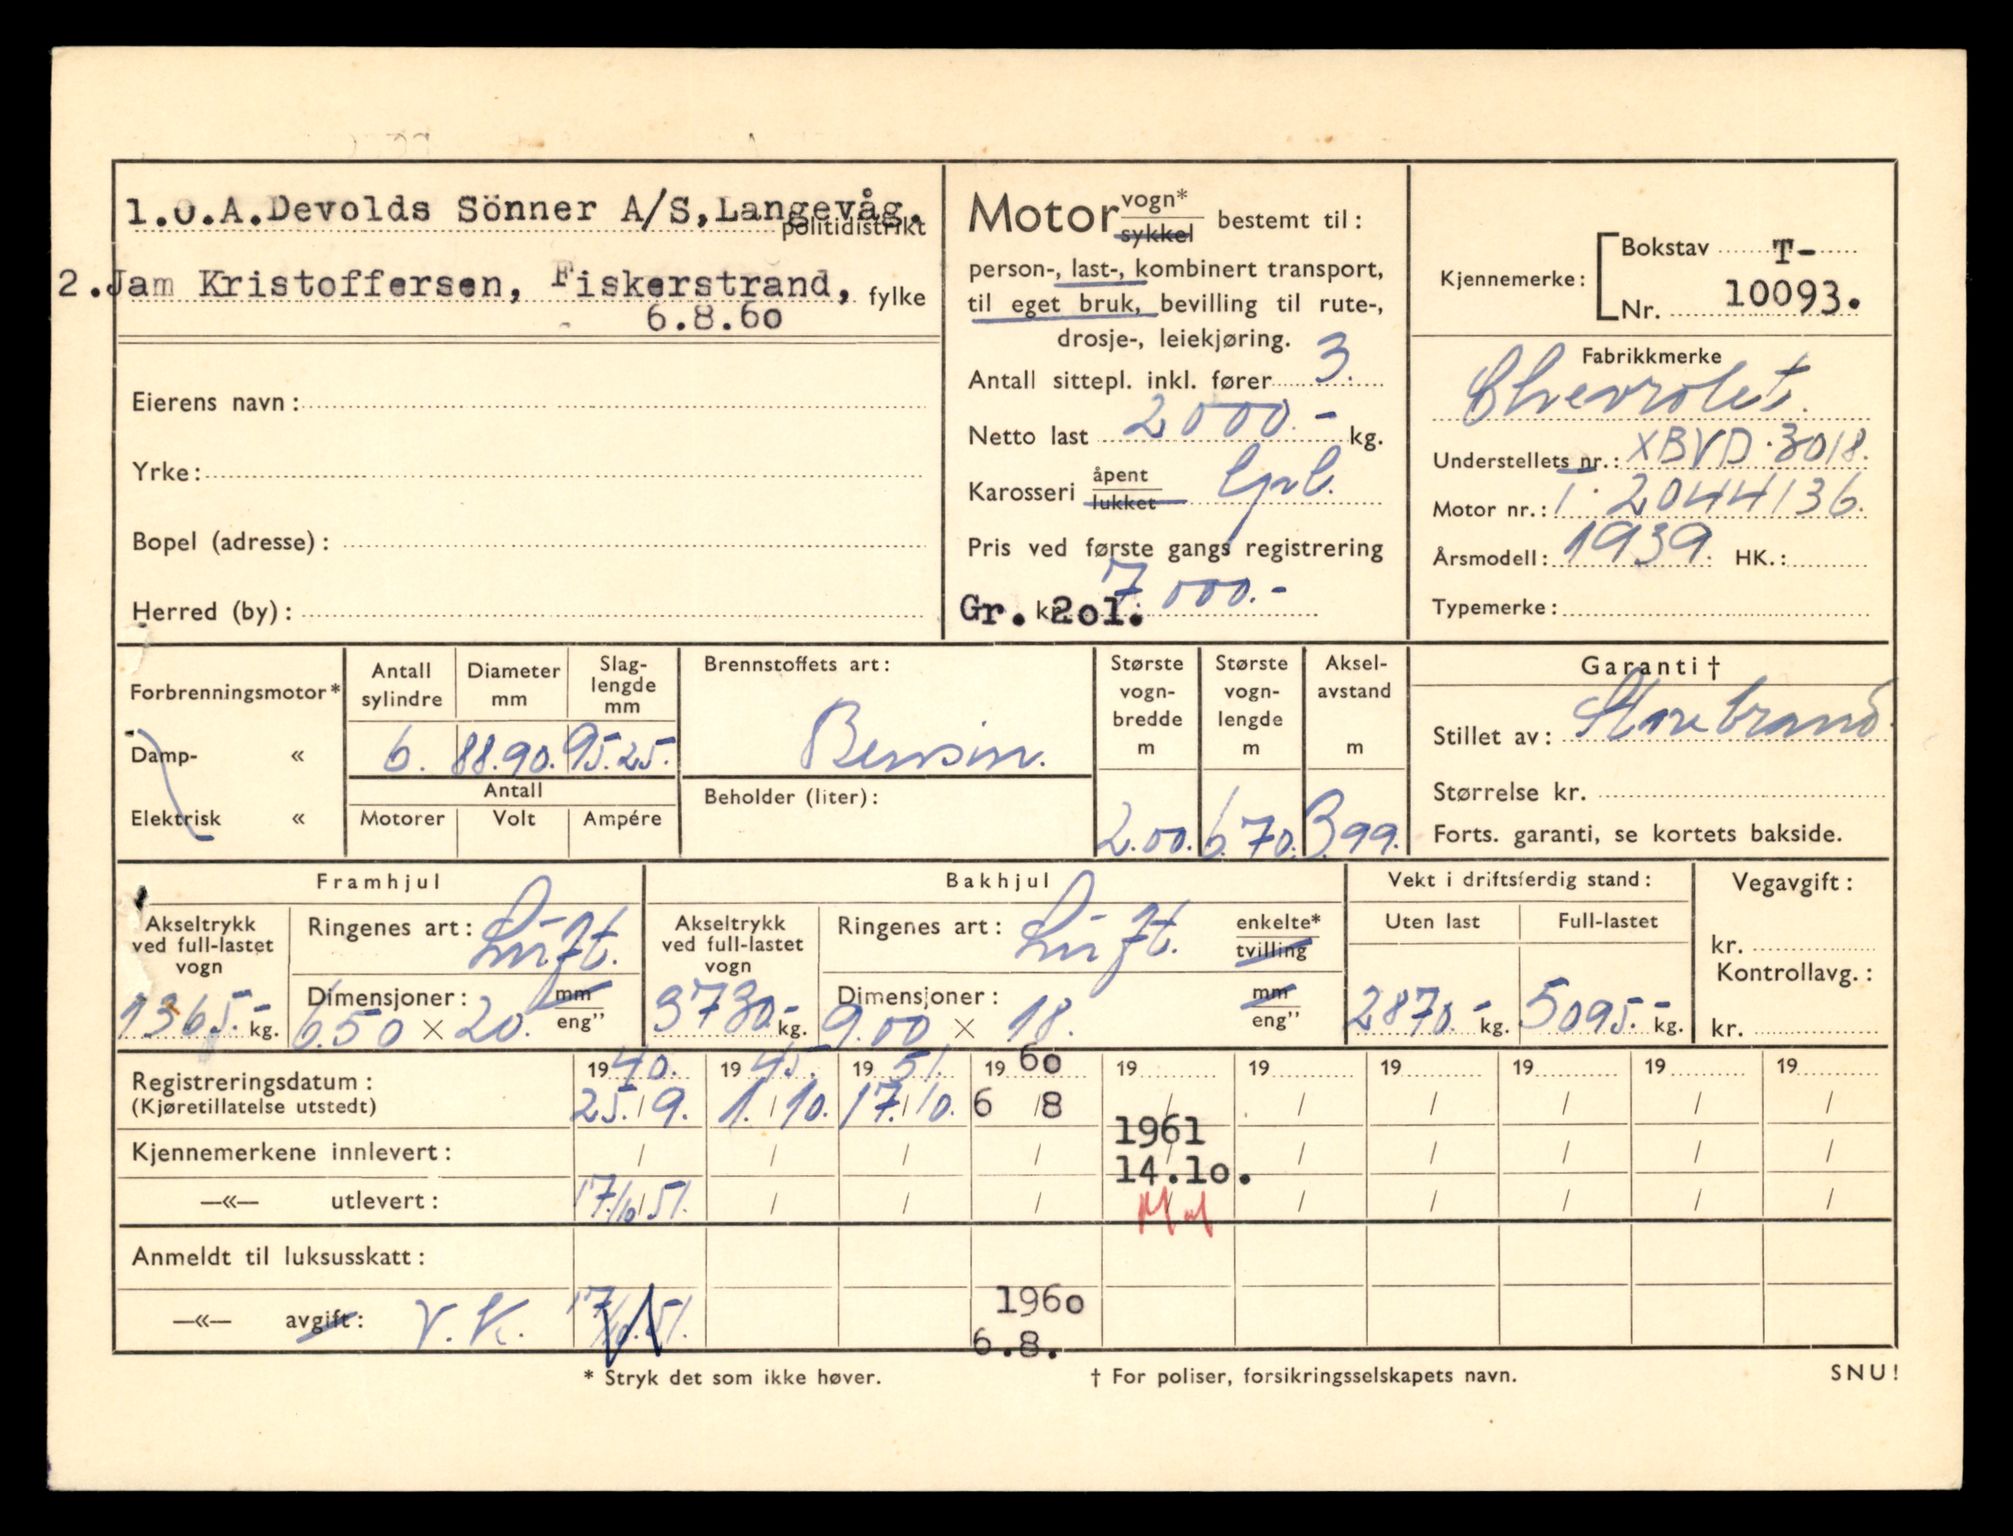 1.O.A.Devolds Sönner A/S,Langevåg.
politidistrikt
2.Jam Kristoffersen, Fiskerstrand, fylke
6.8.60
Eierens navn:
Yrke:
Bopel (adresse):
Herred (by):
Motor vogn* sykkel bestemt til:
person-, last-, kombinert transport,
til eget bruk, bevilling til rute-,
drosje-, leiekjøring.
Antall sittepl. inkl. fører 3.
Netto last 2000.- kg.
Karosseri åpent lukket
Pris ved første gangs registrering
kr. 7000.-
Gr. 2ol.
Kjennemerke: Bokstav T-
Nr. 10093.
Fabrikkmerke
Chevrolet.
Understellets nr.: XBVD.3018.
Motor nr.: T. 2044136.
Årsmodell: 1939. HK.:
Typemerke:
Forbrenningsmotor*
Damp- «
Elektrisk «
Antall sylindre
6.
Diameter mm
88.90.
Slag-lengde mm
95.25.
Antall
Motorer Volt Ampére
Brennstoffets art:
Bensin.
Beholder (liter):
Største vogn-bredde m
2.00.
Største vogn-lengde m
6.70.
Aksel-avstand m
3.99.
Garanti†
Stillet av: Storebrand.
Størrelse kr.
Forts. garanti, se kortets bakside.
Framhjul
Akseltrykk ved full-lastet vogn
1365.- kg.
Ringenes art: Luft.
Dimensjoner: mm eng''
6.50 × 20.
Bakhjul
Akseltrykk ved full-lastet vogn
3730.- kg.
Ringenes art: Luft. enkelte* tvilling
Dimensjoner: mm eng''
9.00 × 18.
Vekt i driftsferdig stand:
Uten last
2870.- kg.
Full-lastet
5095.- kg.
Vegavgift:
kr.
Kontrollavg.:
kr.
Registreringsdatum: 1940. 1945. 1951. 1960 19 19 19 19 19 19
(Kjøretillatelse utstedt) 25./9. 1./10. 17./10. 6/8 / / / / / /
1961
Kjennemerkene innlevert: / / / / 14.1o. / / / / /
—«— utlevert: 17/10/51. / / / / / / / /
Anmeldt til luksusskatt:
—«— avgift: V.K. 17/10.51. 1960
6.8.
* Stryk det som ikke høver.
† For poliser, forsikringsselskapets navn.
SNU!